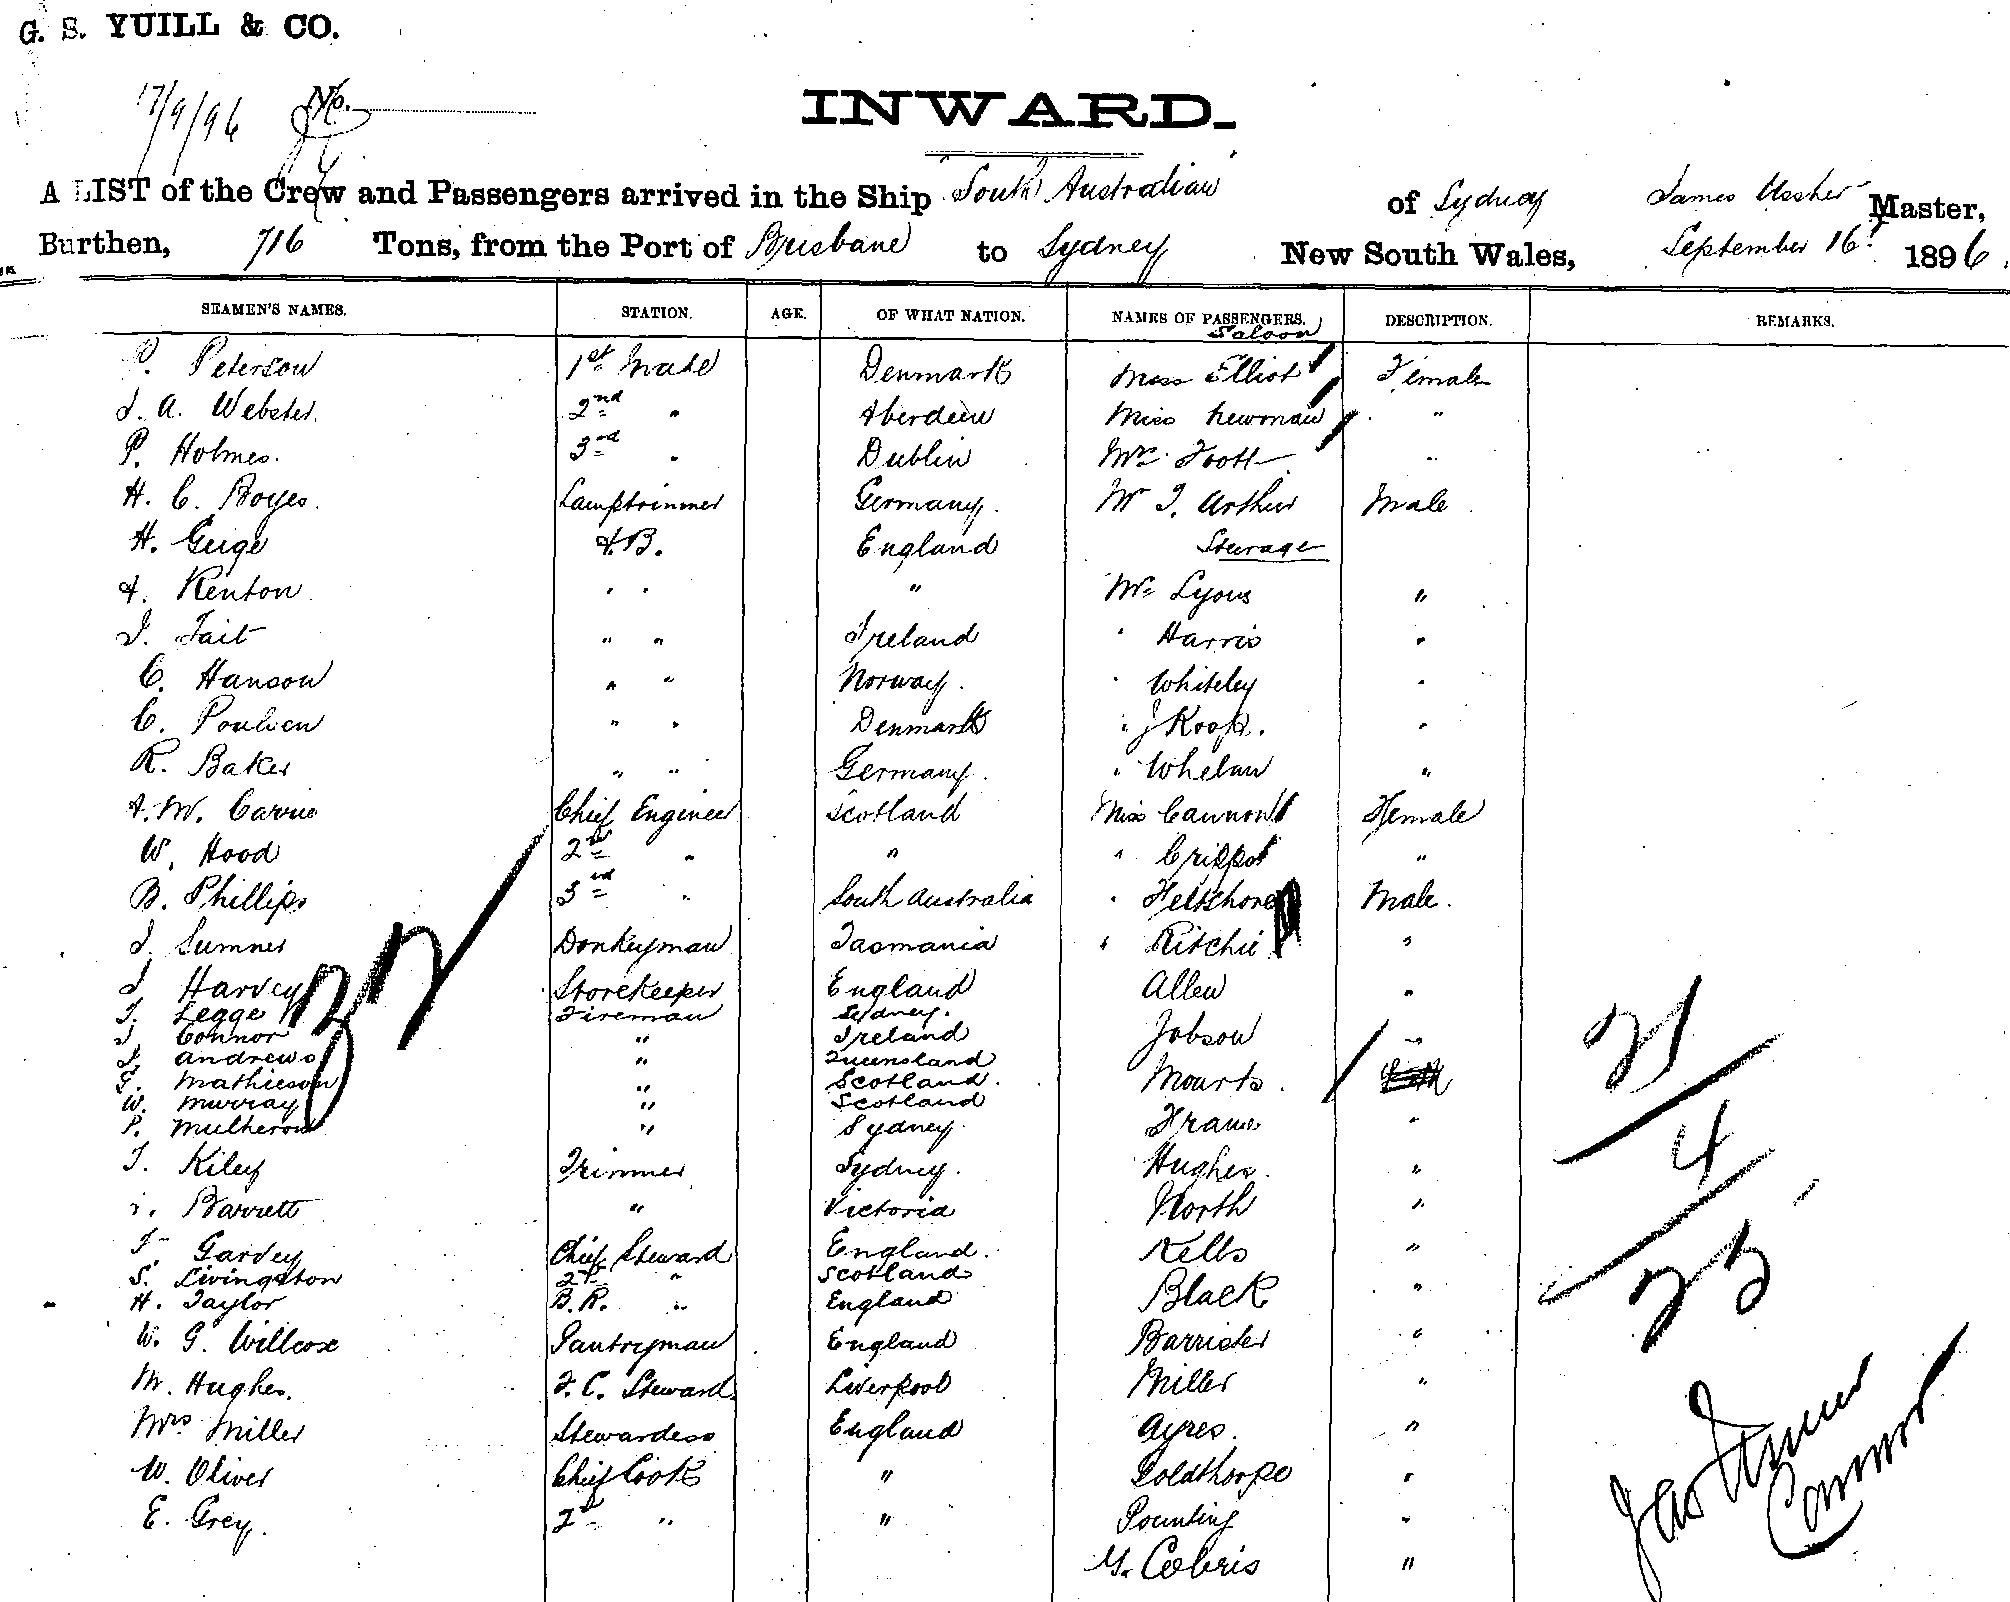 G. S. YUILL & CO.
17/9/96 No.
INWARD.
A LIST of the Crew and Passengers arrived in the Ship South Australian of Sydney James Ussher Master,
Burthen, 716 Tons, from the Port of Brisbane to Sydney New South Wales, September 16 1896.
SEAMEN'S NAMES. STATION. AGE. OF WHAT NATION. NAMES OF PASSENGERS. DESCRIPTION. REMARKS.
Saloon
P. Peterson 1st Mate Denmark Miss Elliot Female
J. A. Webster. 2nd " Aberdeen Miss Newman "
P. Holmes. 3rd " Dublin Mrs Foott "
H. C. Boyes. Lamptrimmer Germany. Mr J. Arthur Male
H. Geige A.B. England Steerage
A. Kenton " " " Mr Lyons "
J. Tait " " Ireland " Harris "
C. Hanson " " Norway. " Whiteley "
C. Poulsen " " Denmark " J Koop. "
R. Baker " " Germany. " Whelan "
A. M. Carrie Chief Engineer Scotland Miss Cannon Female
W. Hood 2nd " " " Cripps "
B. Phillips 3rd " South Australia " Male.
J. Sumner Donkeyman Tasmania " Ritchie "
J Harvey Storekeeper England Allen "
T. Legge Fireman Sydney.
J Connor " Ireland Jobson "
J. Andrews " Queensland
G. Mathieson " Scotland. Mourts.
W. Murray " Scotland
P. Mulheron " Sydney Frame "
T. Kiley Trimmer Sydney. Hughes. "
Barrett " Victoria North "
T. Garvey Chief Steward England. Kells "
S. Livingston 2nd " Scotland
H. Taylor B.R. " England Black "
W. G. Willcox Pantryman England Barrister "
M. Hughes. F. C. Steward Liverpool Miller "
Mrs Miller Stewardess England Ayres. "
W. Oliver Chief Cook " Goldthorpe "
E. Grey. 2nd " " Pounting "
G. Cobris "
21
4
25